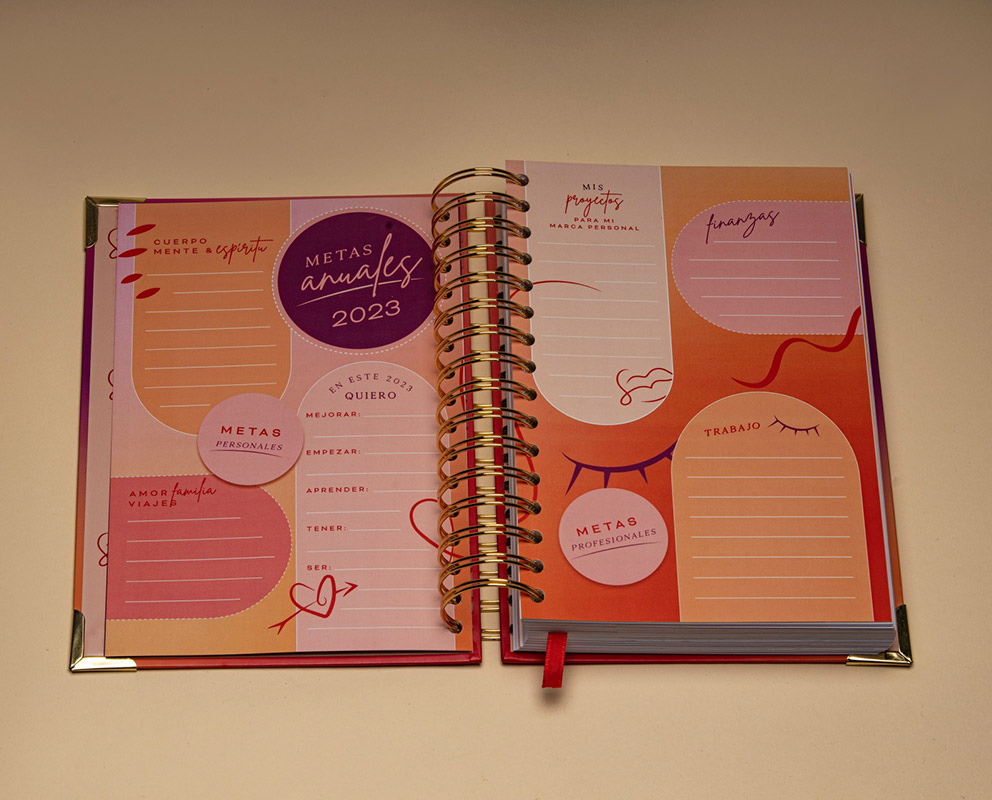 CUERPO
MENTE & espíritu
METAS
anuales
2023
EN ESTE 2023
QUIERO
MEJORAR:
EMPEZAR:
APRENDER:
TENER:
SER:
METAS
PERSONALES
AMOR familia
VIAJES
MIS
proyectos
PARA MI
MARCA PERSONAL
finanzas
TRABAJO
METAS
PROFESIONALES